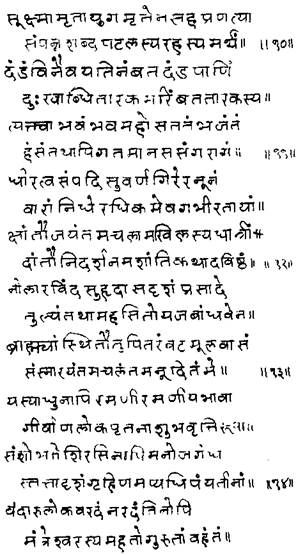 सूक्ष्मामृतायुगमृतेनसहप्रणत्या
संपन्नशब्दपटलस्यरहस्यमर्थं॥ ॥१०॥
दंडंविनैवयतिनंबतदंडपाणिं
दुःखाब्धितारकमरिंबततारकस्य॥
त्यक्त्वाभवंभवमहोसततंभजंतं
हंसंतथापिगतमानससंगरागं॥ ॥११॥
धीरत्वसंपदिसुवर्णगिरेरनूनं
वारांनिधेरधिकमेवगभीरतायां॥
क्षांतौजयंतमचलामखिलस्यधात्रीं
दांतौनिदर्शनमशांतिकथादविष्ठं॥ ॥१२॥
नीलारविंदसुहृदासदृशंप्रसादे
तुल्यंतथामहसितोयजबांधवेन॥
ब्राह्म्यांस्थितौतुपितरंवटमूलवासं
संस्मारयंतमचलंतमनूदितंमे॥ ॥१३॥
यस्याधुनापिरमणीरमणीयभावा
गीर्वाणलोकपृतनाशुभवृत्तिरूपा॥
संशोभतेशिरसिनापिमनोजगंध
स्तत्तादृशंगृहिणमप्यधिपंयतीनां॥ ॥१४॥
वंदारुलोकवरदंनरदंतिनोपि
मंत्रेश्वरस्यमहतोगुरुतांवहंतं॥